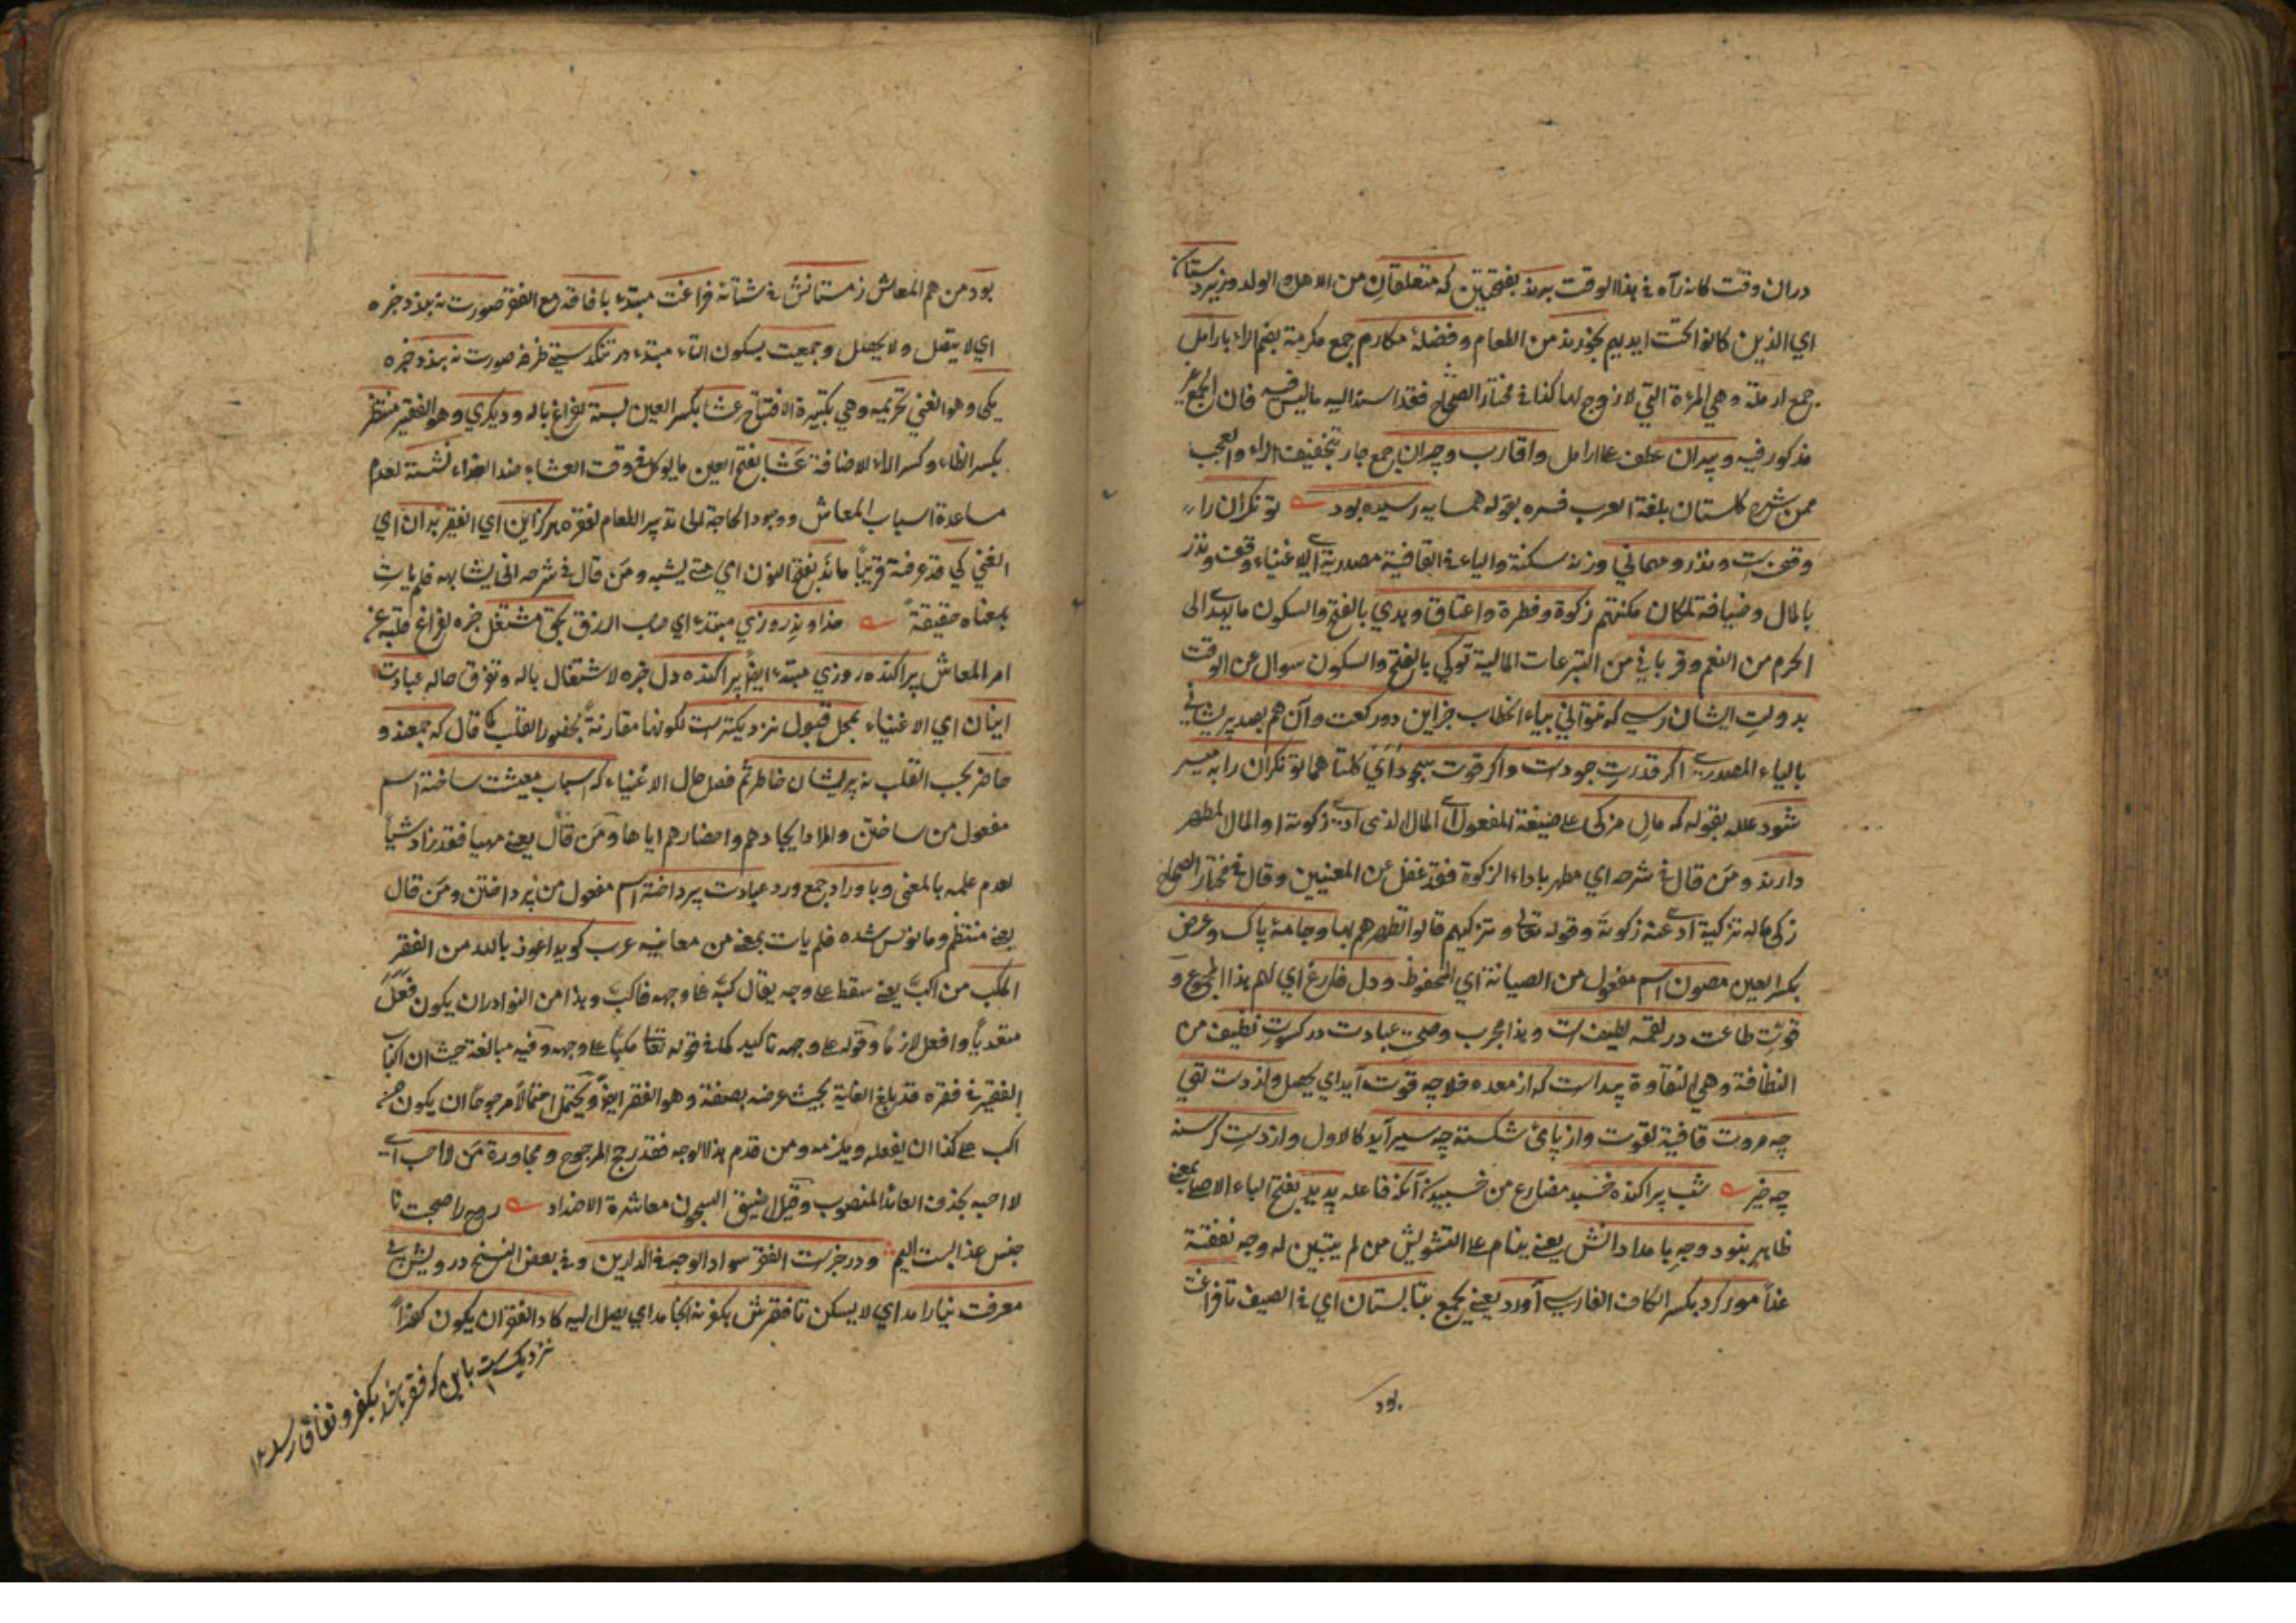 دران وقت كانه رآه في هذا الوقت برند بفتحتين كه متعلقان من الاهل والولد وزيردستان
اي الذين كانوا تحت ايديهم بخورند من الطعام وفضلهٔ مكارم جمع مكرمة بضم الراء بارامل
جمع ارملة وهي المرءة التي لا زوج لها كذا في مختار الصحاح فقد اسند اليه ما ليس فيه فان الجمع غير
مذكور فيه وپيران عطف على ارامل واقارب وجيران جمع جار بتخفيف الراء والعجب
ممن شرح كلستان بلغة العرب فسره بقوله همسايه رسيده بود توانكران را
وقف است ونذر ومهماني وزنه سكنة والياء في القافية مصدرية اي للاغنياء وقف ونذر
بالمال وضيافة لمكان مكنتهم زكوة وفطرة واعتاق وهدي بالفتح والسكون ما يهدى الى
الحرم من النعم وقرباني من التبرعات المالية توكي بالفتح والسكون سوال عن الوقت
بدولت ايشان رسي كه نتواني بياء الخطاب جز اين دو ركعت وآن هم بصد پريشاني
بالياء المصدرية اكر قدرت جودست واكر قوت سجود اي كلتاهما توانكران را به ميسر
شود علله بقوله كه مال مزكى على صيغة المفعول اي المال الذي ادى زكوته او المال المطهر
دارند ومن قال في شرحه اي مطهر باداء الزكوة فقد غفل عن المعنيين وقال في مختار الصحاح
زكى ماله تزكية ادى عنه زكوته وقوله تعالى وتزكيهم قالوا تطهرهم بها وجامهٔ پاك وعرض
بكسر العين مصون اسم مفعول من الصيانة اي المحفوظ ودل فارغ اي لهم هذا المجموع و
قوت طاعت در لقمه لطيف است وهذا مجرب وصحت عبادت در كسوت نظيف من
النظافة وهي النقاوة پيداست كه از معده خلا چه قوت آيد اي يحصل واز دست تهي
چه مروت قافية لقوت واز پای شكسته چه سير آيد كالاول واز دست كرسنه
چه خير شب پراكنده خسبد مضارع من خسبيدن آنكه فاعله پديد بفتح الباء الاصلي بمعنى
ظاهر نبود وجه بامدادانش يعني ينام على التشويش من لم يتبين له وجه نفقته
غداً مور كرد بكسر الكاف الفارسي آورد يعني يجمع بتابستان اي في الصيف تا فراغت
بود
بود من هم المعاش زمستانش في شتائه فراغت مبتدء بافاقه مع الفقر صورت نه بندد خبره
اي لا يتقل ولا يحصل وجمعيت بسكون التاء مبتدء در تنكدستي ظرفه صورت نه بندد خبره
يكى وهو الغني تحريمه وهي تكبيرة الافتتاح عشا بكسر العين بسته لفراغ باله وديكري وهو الفقير منتظر
بكسر الظاء وكسر الراء للاضافة عشا بفتح العين ما يوكل في وقت العشاء ضد الغداء نشسته لعدم
مساعدة اسباب المعاش ووجود الحاجة الى تدبير الطعام لفقره هركز اين اي الفقير بدان اي
الغني كي قد عرفته قريباً ماند بفتح النون اي متى يشبه ومن قال في شرحه الى يشابهه فلم يات
بمعناه حقيقة خداوند روزي مبتدء اي صاحب الرزق بحق مشتغل خبره لفراغ قلبه عن
امر المعاش پراكنده روزي مبتدء ايضاً پراكنده دل خبره لاشتغال باله وتفرق حاله عبادت
اينان اي الاغنياء بمحل قبول نزديكترست لكونها مقارنة بحضور القلب كما قال كه جمعند و
حاضر بحسب القلب نه پريشان خاطر ثم فصل حال الاغنياء كه اسباب معيشت ساخته اسم
مفعول من ساختن والمراد ايجادهم واحضارهم اياها ومن قال يعني مهيا فقد زاد شيأ
لعدم علمه بالمعنى وباوراد جمع ورد عبادت پرداخته اسم مفعول من پرداختن ومن قال
يعني منتظم ومانوس شده فلم يات بمعنى من معانيه عرب كويد اعوذ بالله من الفقر
المكب من اكب يعني سقط على وجه يقال كبه على وجهه فاكب وهذا من النوادر ان يكون فعل
متعدياً وافعل لازماً وقوله على وجهه تاكيد كما في قوله تعالى مكباً على وجهه وفيه مبالغة حيث ان اكباب
الفقير في فقره قد بلغ الغاية بحيث عرضه بصفته وهو الفقر ايضاً ويحتمل احتمالاً مرجوحاً ان يكون من
اكب على كذا ان يفعله ويلزمه ومن قدم هذا الوجه فقد رجح المرجوح ومجاورة من لا احب اي
لا احبه بحذف العائد المنصوب وقيل اضيق السجون معاشرة الاضداد روح را صحبت نا
جنس عذابيست اليم ودر خبرست الفقر سواد الوجه في الدارين وفي بعض النسخ درويش بي
معرفت نيارامد اي لا يسكن تا فقرش بكفر نه انجامد اي يصل اليه كاد الفقر ان يكون كفراً
نزديكست باين كه فقر باشد بكفر ونفاق رسد ١٢